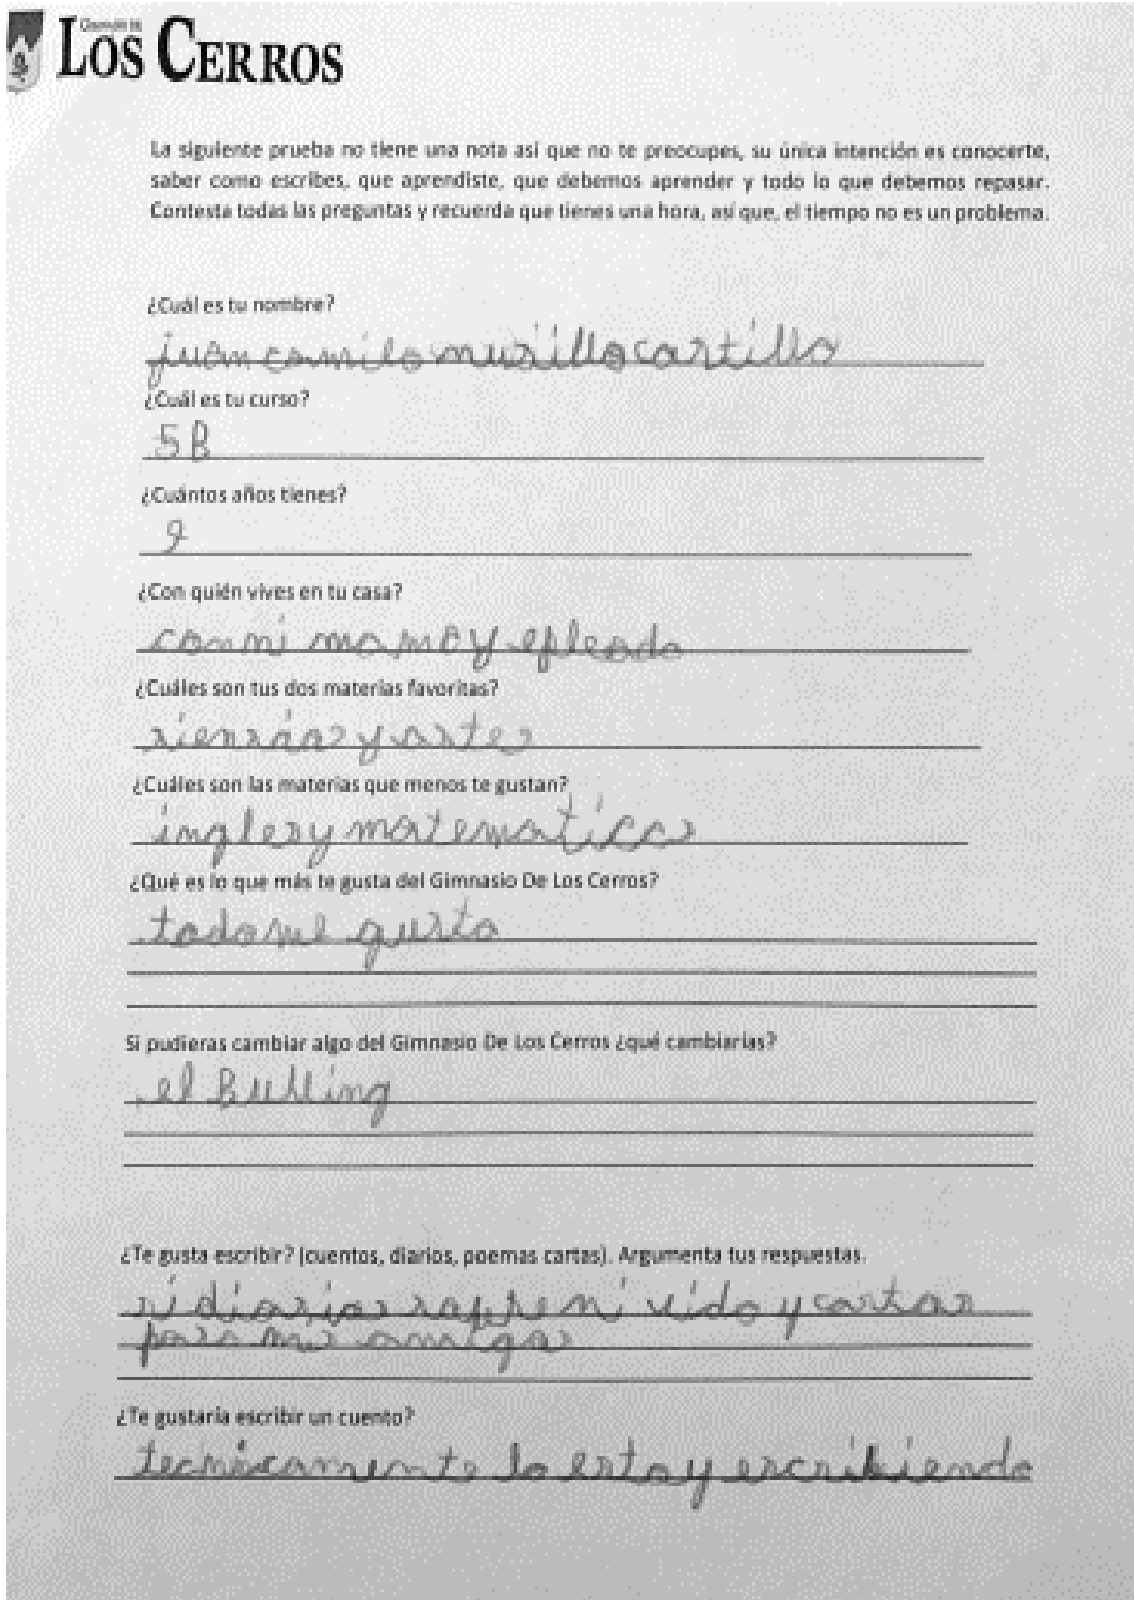 GIMNASIO DE
LOS CERROS
La siguiente prueba no tiene una nota así que no te preocupes, su única intención es conocerte,
saber como escribes, que aprendiste, que debemos aprender y todo lo que debemos repasar.
Contesta todas las preguntas y recuerda que tienes una hora, así que, el tiempo no es un problema.
¿Cuál es tu nombre?
juan camilo murillo castillo
¿Cuál es tu curso?
5B
¿Cuántos años tienes?
9
¿Con quién vives en tu casa?
con mi mama y epleada
¿Cuáles son tus dos materias favoritas?
siensias y artes
¿Cuáles son las materias que menos te gustan?
ingles y matematicas
¿Qué es lo que más te gusta del Gimnasio De Los Cerros?
todo me gusta
Si pudieras cambiar algo del Gimnasio De Los Cerros ¿qué cambiarías?
el Bulling
¿Te gusta escribir? (cuentos, diarios, poemas cartas). Argumenta tus respuestas.
si diarios mi vida y cartas
para mis amigas
¿Te gustaría escribir un cuento?
tecnicamente lo estoy escribiendo